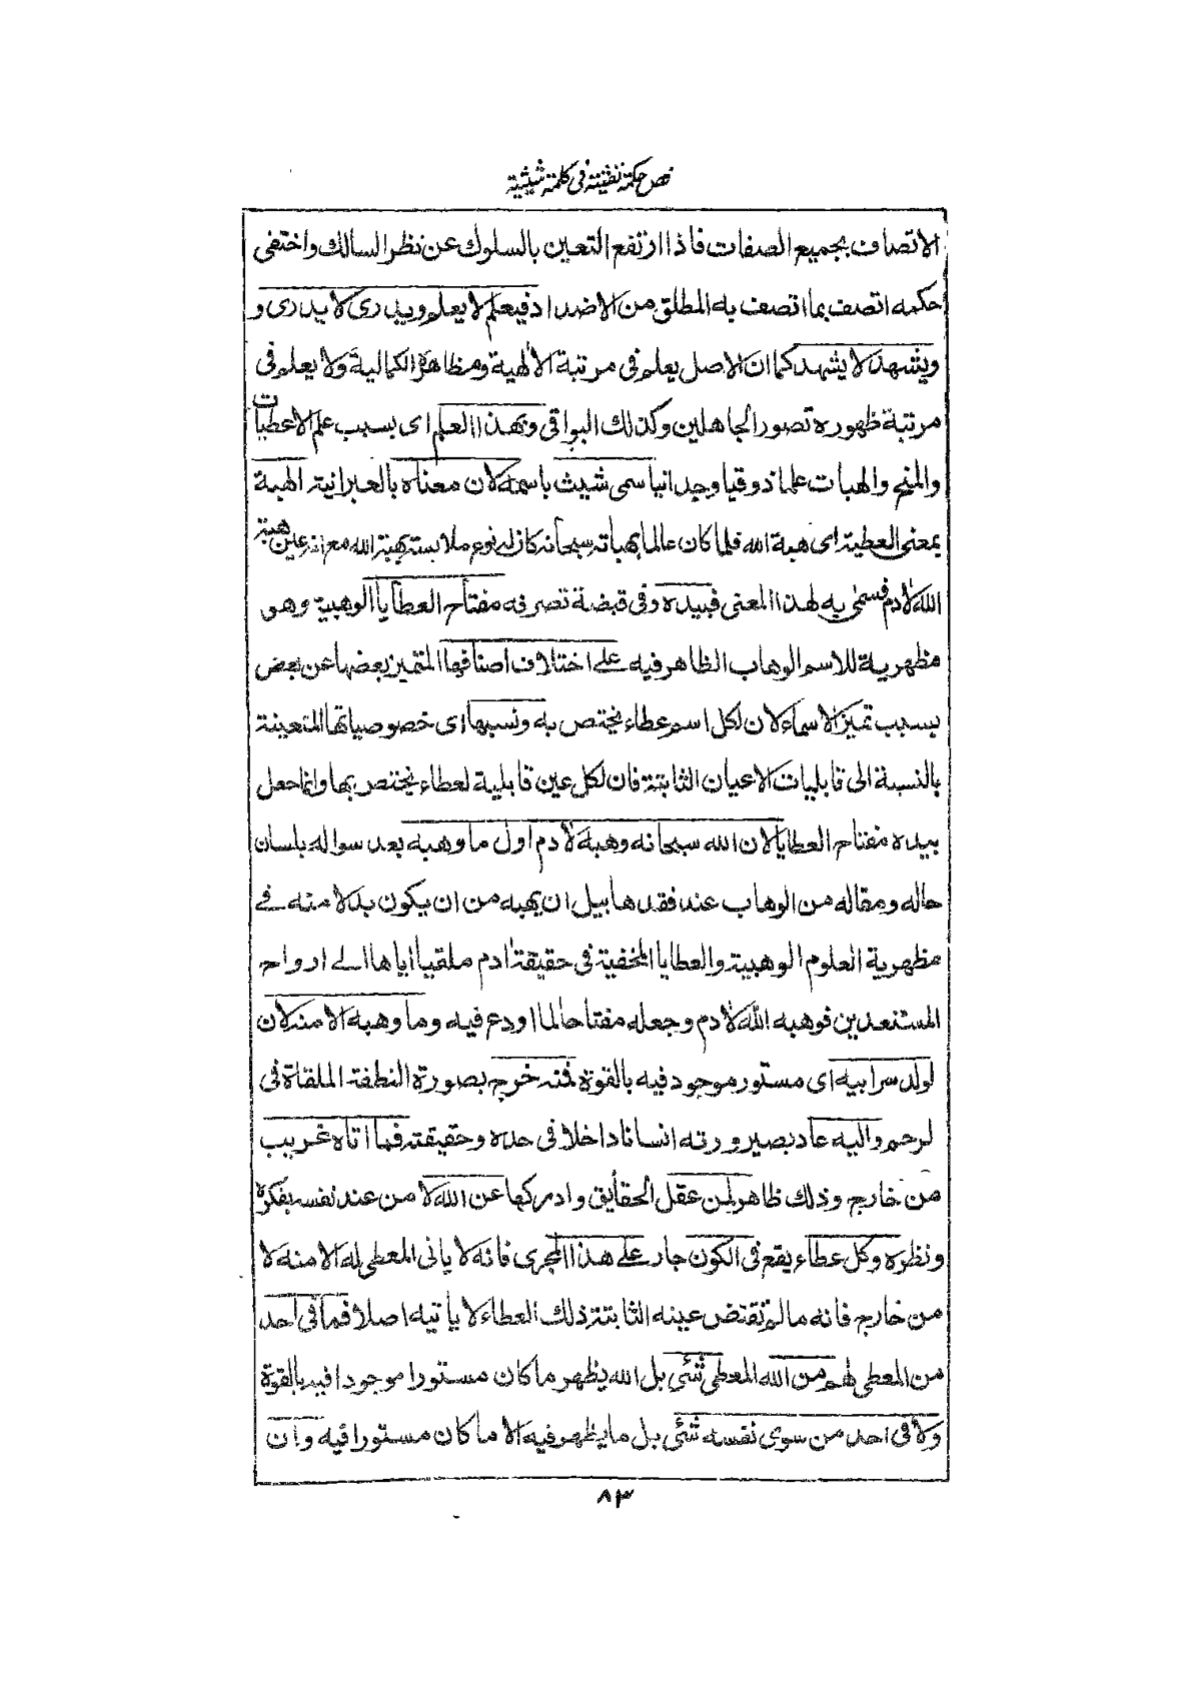 نص حكمة نفثية في كلمة شيثية
الاتصاف بجميع الصفات فاذا ارتفع التعين بالسلوك عن نظر السالك واختفى
حكمه اتصف بما اتصف به المطلق من الاضداد فيعلم لا يعلم ويدرى لا يدرى و
ويشهد لا يشهد كما ان الاصل يعلم فى مرتبة الالهية ومظاهره الكمالية ولا يعلم فى
مرتبة ظهوره تصور الجاهلين وكذلك البواقى وبهذا العلم اى بسبب علم الاعطيات
والمنح والهبات علما ذوقيا وجدانيا سمى شيث باسمه لان معناه بالعبرانية الهبة
بمعنى العطية اى هبة الله فلما كان عالما بهباته سبحانه كان له نوع ملابسة بهبة الله مع انه عين هبة
الله لادم فسمى به لهذا المعنى فبيده وفى قبضة تصرفه مفتاح العطايا الوهبية وهو
مظهرية للاسم الوهاب الظاهر فيه على اختلاف اصنافها المتميز بعضها عن بعض
بسبب تميز الاسماء لان لكل اسم عطاء يختص به ونسبها اى خصوصياتها المتعينة
بالنسبة الى قابليات الاعيان الثابتة فان لكل عين قابلية لعطاء يختص بها وانما جعل
بيده مفتاح العطايا لان الله سبحانه وهبه لادم اول ما وهبه بعد سواله بلسان
حاله ومقاله من الوهاب عند فقد هابيل ان يهبه من ان يكون بدلا منه فے
مظهرية العلوم الوهبية والعطايا المخفية فى حقيقة ادم ملقيا اياها الے ارواح
المستعدين فوهبه الله لادم وجعله مفتاحا لما اودع فيه وما وهبه الا منه لان
لولد سر ابيه اى مستور موجود فيه بالقوة فمنه خرج بصورة النطفة الملقاة فى
لرحم واليه عاد بصيرورته انسانا داخلا فى حده وحقيقته فما اتاه غريب
من خارج وذلك ظاهر لمن عقل الحقايق وادركها عن الله لا من عند نفسه بفكره
ونظره وكل عطاء يقع فى الكون جار على هذا المجرى فانه لا ياتى المعطى له الا منه لا
من خارج فانه ما لم تقتض عينه الثابتة ذلك العطاء لا ياتيه اصلا فما فى احد
من المعطى لهم من الله المعطى شئى بل الله يظهر ما كان مستورا موجودا فيه بالقوة
ولا فى احد من سوى نفسه شئى بل ما يظهر فيه الا ما كان مستورا فيه وان
٨٣